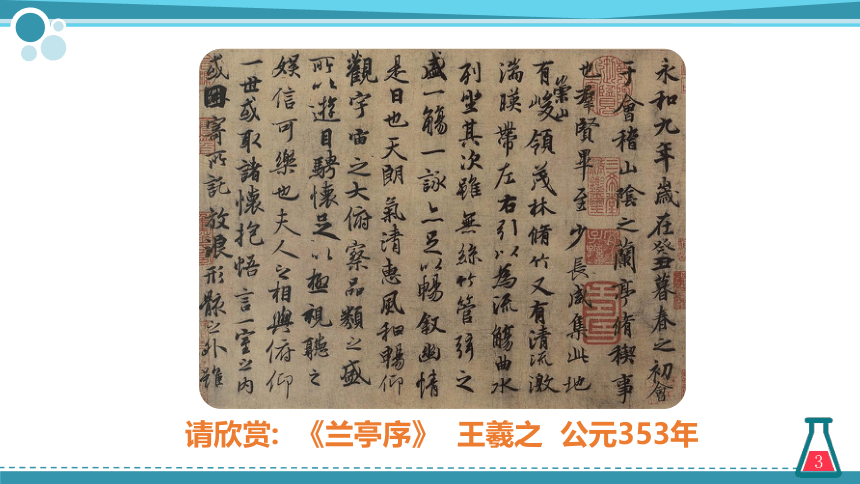 永和九年歲在癸丑暮春之初會
于會稽山陰之蘭亭脩稧事
也羣賢畢至少長咸集此地
有崇山峻領茂林脩竹又有清流激
湍暎帶左右引以為流觴曲水
列坐其次雖無絲竹管弦之
盛一觴一詠亦足以暢叙幽情
是日也天朗氣清惠風和暢仰
觀宇宙之大俯察品類之盛
所以遊目騁懷足以極視聽之
娛信可樂也夫人之相與俯仰
一世或取諸懷抱悟言一室之內
或因寄所託放浪形骸之外雖
请欣赏：《兰亭序》 王羲之 公元353年
3